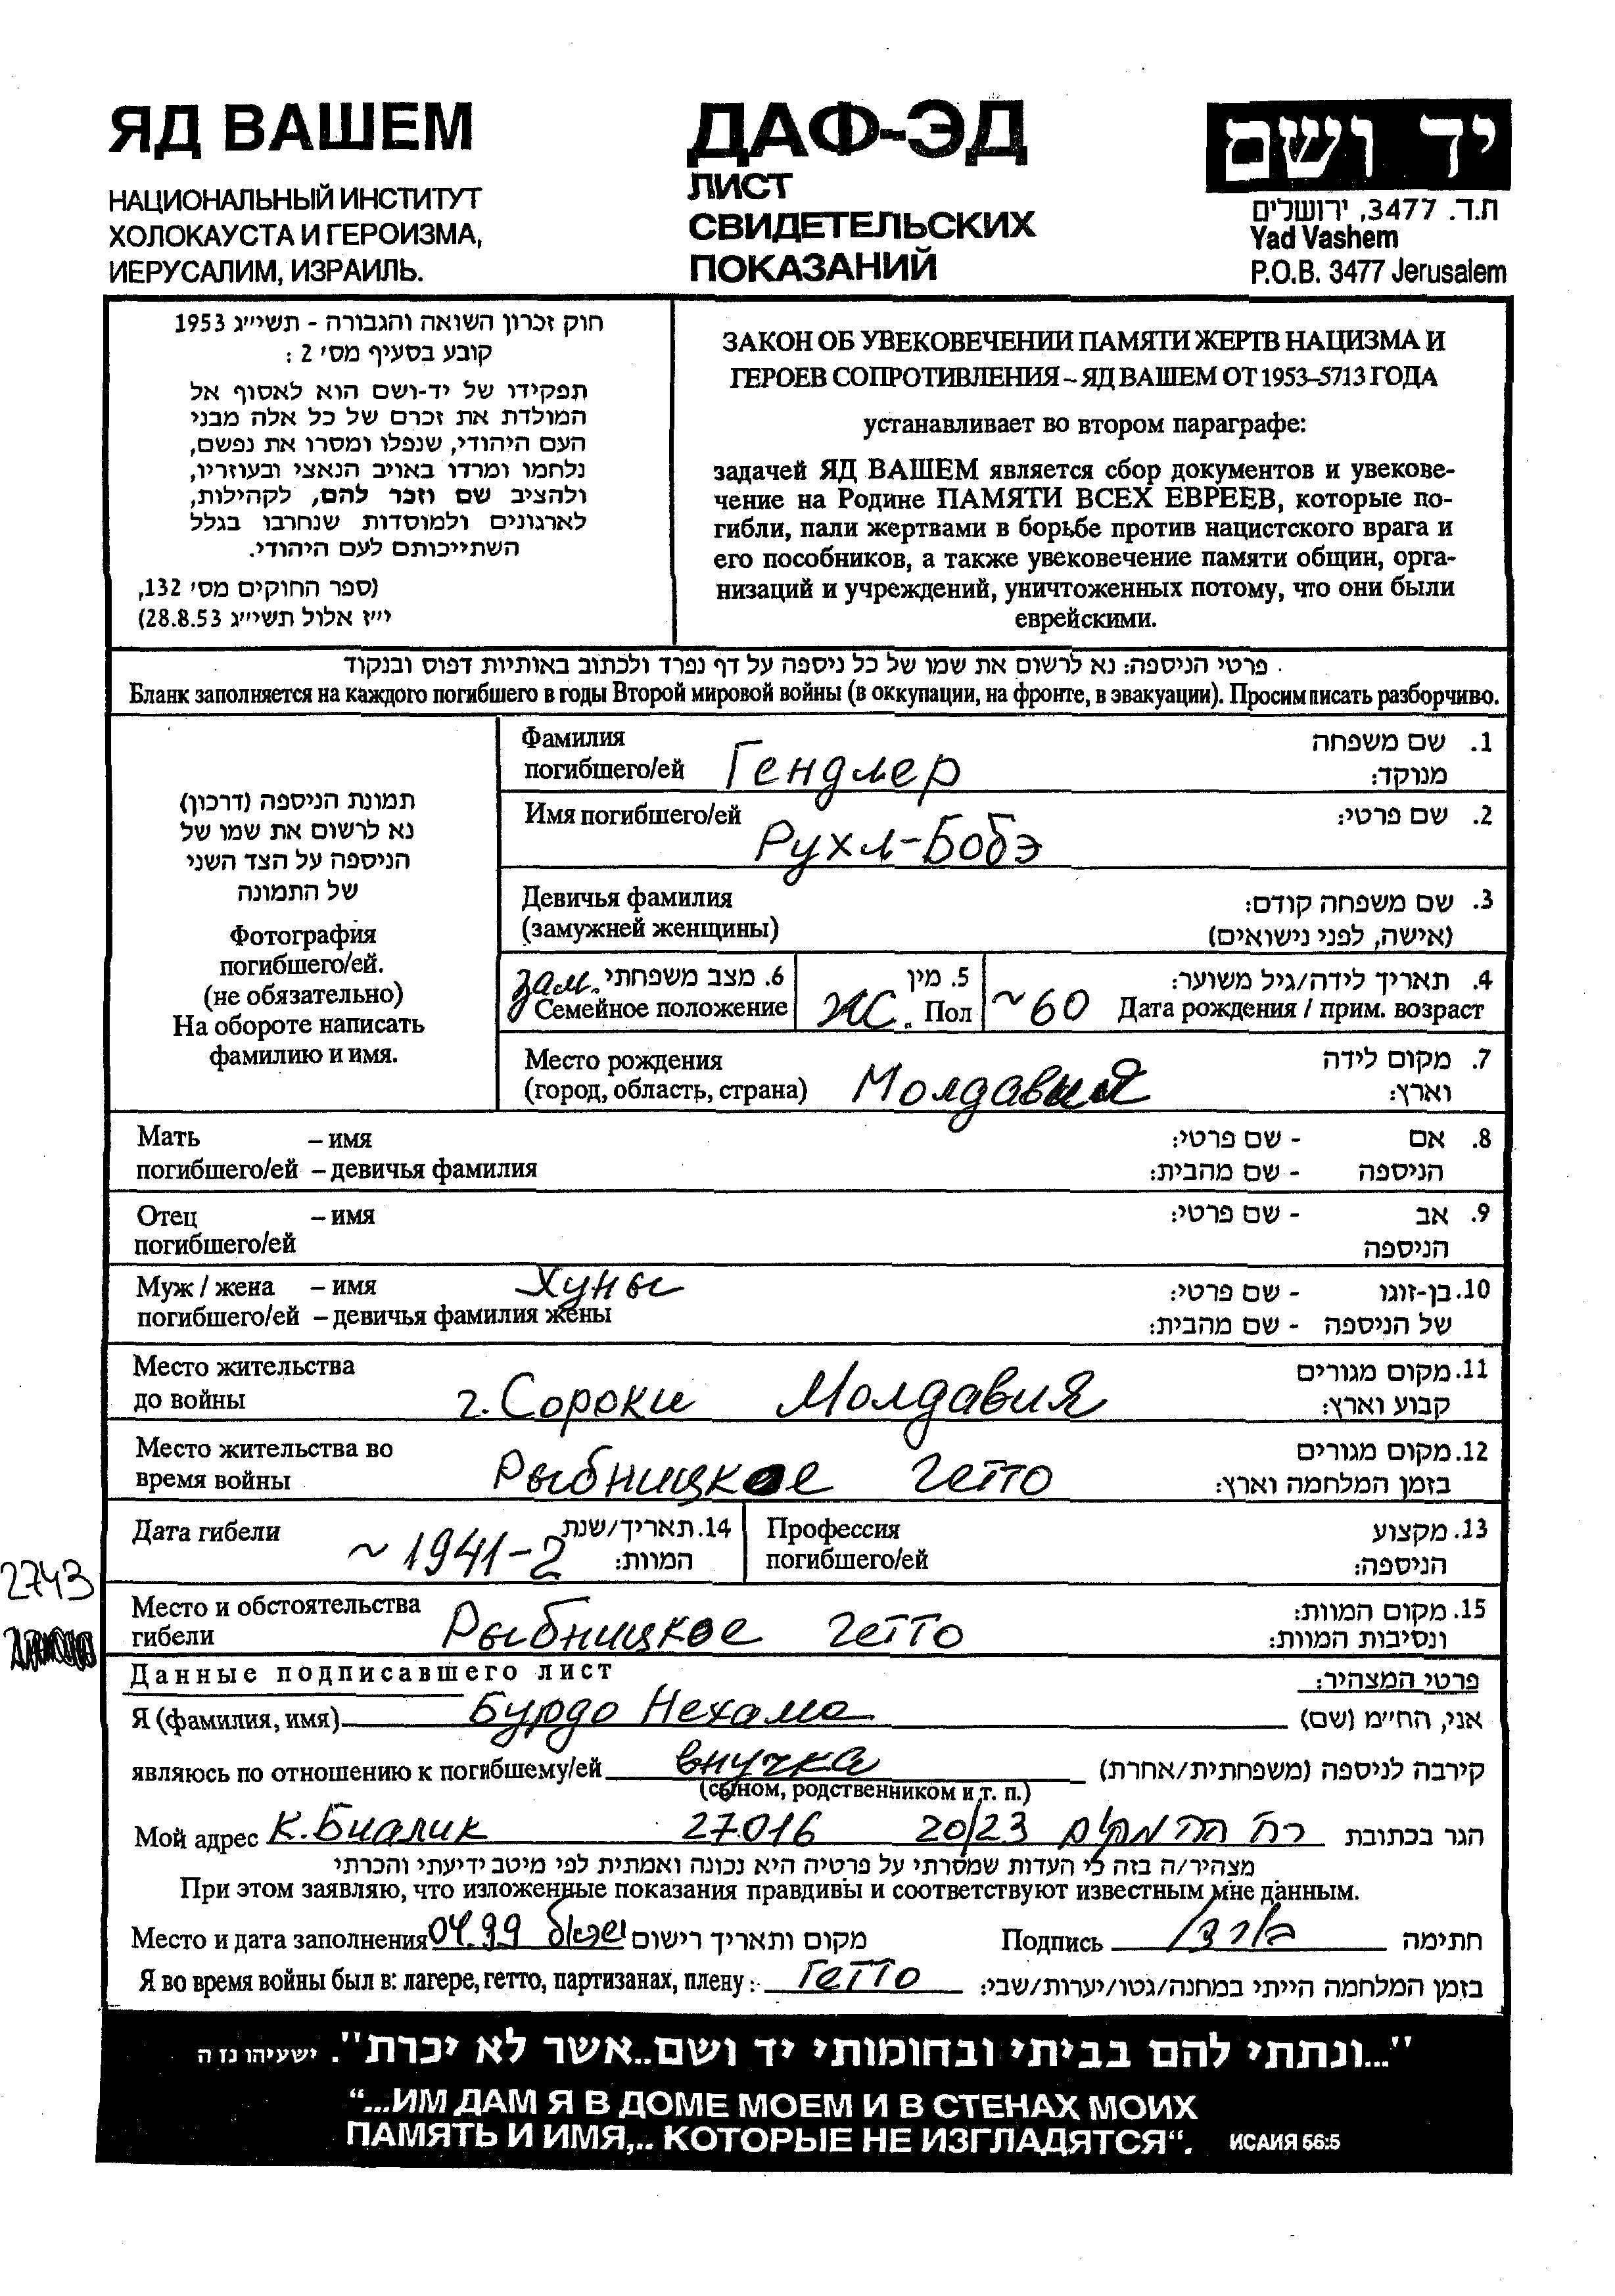 ЯД ВАШЕМ
НАЦИОНАЛЬНЫЙ ИНСТИТУТ
ХОЛОКАУСТА И ГЕРОИЗМА,
ИЕРУСАЛИМ, ИЗРАИЛЬ.
ДАФ-ЭД
ЛИСТ
СВИДЕТЕЛЬСКИХ
ПОКАЗАНИЙ
יד ושם
ת.ד. 3477, ירושלים
Yad Vashem
P.O.B. 3477 Jerusalem
חוק זכרון השואה והגבורה - תשי״ג 1953
קובע בסעיף מס׳ 2 :
תפקידו של יד-ושם הוא לאסוף אל
המולדת את זכרם של כל אלה מבני
העם היהודי, שנפלו ומסרו את נפשם,
נלחמו ומרדו באויב הנאצי ובעוזריו,
ולהציב שם וזכר להם, לקהילות,
לארגונים ולמוסדות שנחרבו בגלל
השתייכותם לעם היהודי.
(ספר החוקים מס׳ 132,
י״ז אלול תשי״ג 28.8.53)
ЗАКОН ОБ УВЕКОВЕЧЕНИИ ПАМЯТИ ЖЕРТВ НАЦИЗМА И
ГЕРОЕВ СОПРОТИВЛЕНИЯ – ЯД ВАШЕМ ОТ 1953–5713 ГОДА
устанавливает во втором параграфе:
задачей ЯД ВАШЕМ является сбор документов и увекове-
чение на Родине ПАМЯТИ ВСЕХ ЕВРЕЕВ, которые по-
гибли, пали жертвами в борьбе против нацистского врага и
его пособников, а также увековечение памяти общин, орга-
низаций и учреждений, уничтоженных потому, что они были
еврейскими.
פרטי הניספה: נא לרשום את שמו של כל ניספה על דף נפרד ולכתוב באותיות דפוס ובנקוד.
Бланк заполняется на каждого погибшего в годы Второй мировой войны (в оккупации, на фронте, в эвакуации). Просим писать разборчиво.
תמונת הניספה (דרכון)
נא לרשום את שמו של
הניספה על הצד השני
של התמונה
Фотография
погибшего/ей.
(не обязательно)
На обороте написать
фамилию и имя.
Фамилия 1. שם משפחה
погибшего/ей Гендлер מנוקד:
Имя погибшего/ей 2. שם פרטי:
Рухл-Бобэ
Девичья фамилия 3. שם משפחה קודם:
(замужней женщины) (אישה, לפני נישואים)
зам. 6. מצב משפחתי 5. מין 4. תאריך לידה/גיל משוער:
Семейное положение Ж. Пол ~60 Дата рождения / прим. возраст
Место рождения 7. מקום לידה
(город, область, страна) Молдавия וארץ:
Мать – имя 8. אם - שם פרטי:
погибшего/ей – девичья фамилия הניספה - שם מהבית:
Отец – имя 9. אב - שם פרטי:
погибшего/ей הניספה
Муж / жена – имя Хуны 10. בן-זוגו - שם פרטי:
погибшего/ей – девичья фамилия жены של הניספה - שם מהבית:
Место жительства 11. מקום מגורים
до войны г. Сороки Молдавия קבוע וארץ:
Место жительства во 12. מקום מגורים
время войны Рыбницкое гетто בזמן המלחמה וארץ:
Дата гибели ~ 1941-2 14. תאריך/שנת המוות:
Профессия 13. מקצוע
погибшего/ей הניספה:
2743
Место и обстоятельства 15. מקום המוות:
гибели Рыбницкое гетто ונסיבות המוות:
Данные подписавшего лист פרטי המצהיר:
Я (фамилия, имя) Бурдо Нехама אני, החי״מ (שם)
являюсь по отношению к погибшему/ей внучка קירבה לניספה (משפחתית/אחרת)
(сыном, родственником и т. п.)
Мой адрес К. Биалик 27016 20/23 הגר בכתובת
מצהיר/ה בזה כי העדות שמסרתי על פרטיה היא נכונה ואמתית לפי מיטב ידיעתי והכרתי
При этом заявляю, что изложенные показания правдивы и соответствуют известным мне данным.
Место и дата заполнения 04.99 מקום ותאריך רישום Подпись חתימה
Я во время войны был в: лагере, гетто, партизанах, плену: гетто בזמן המלחמה הייתי במחנה/גטו/יערות/שבי:
"...ונתתי להם בביתי ובחומותי יד ושם..אשר לא יכרת". ישעיהו נז ה
“...ИМ ДАМ Я В ДОМЕ МОЕМ И В СТЕНАХ МОИХ
ПАМЯТЬ И ИМЯ,.. КОТОРЫЕ НЕ ИЗГЛАДЯТСЯ“. ИСАИЯ 56:5